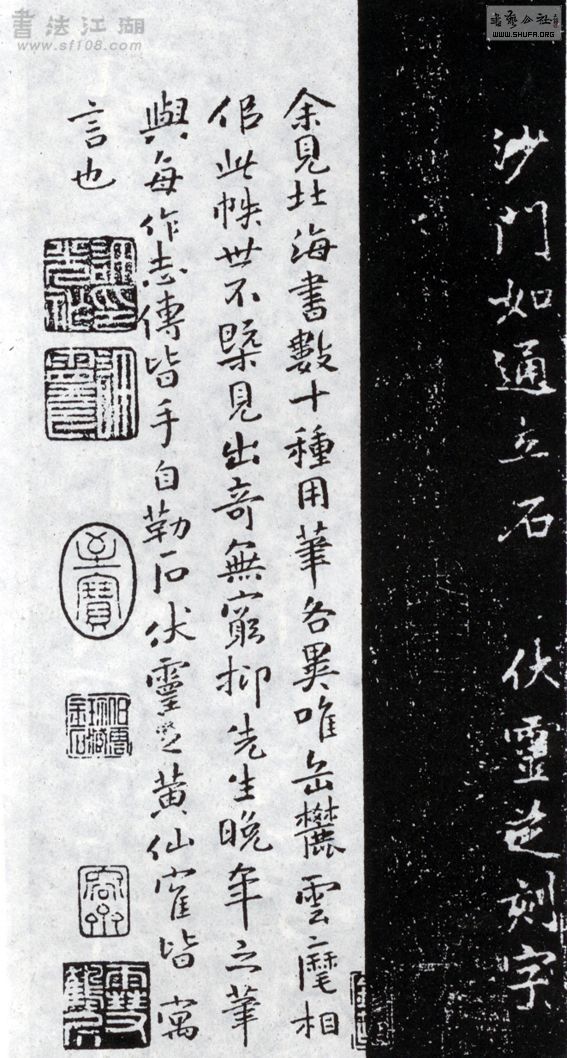 書法江湖
www.sf108.com
書藝公社
WWW.SHUFA.ORG
沙門如通立石 伏靈芝刻字
余見北海書數十種用筆各異唯岳麓雲麾相
侶此帙世不槩見出奇無窮抑先生晚年之筆
與每作志傳皆手自勒石伏靈芝黃仙隺皆寓
言也
至寶